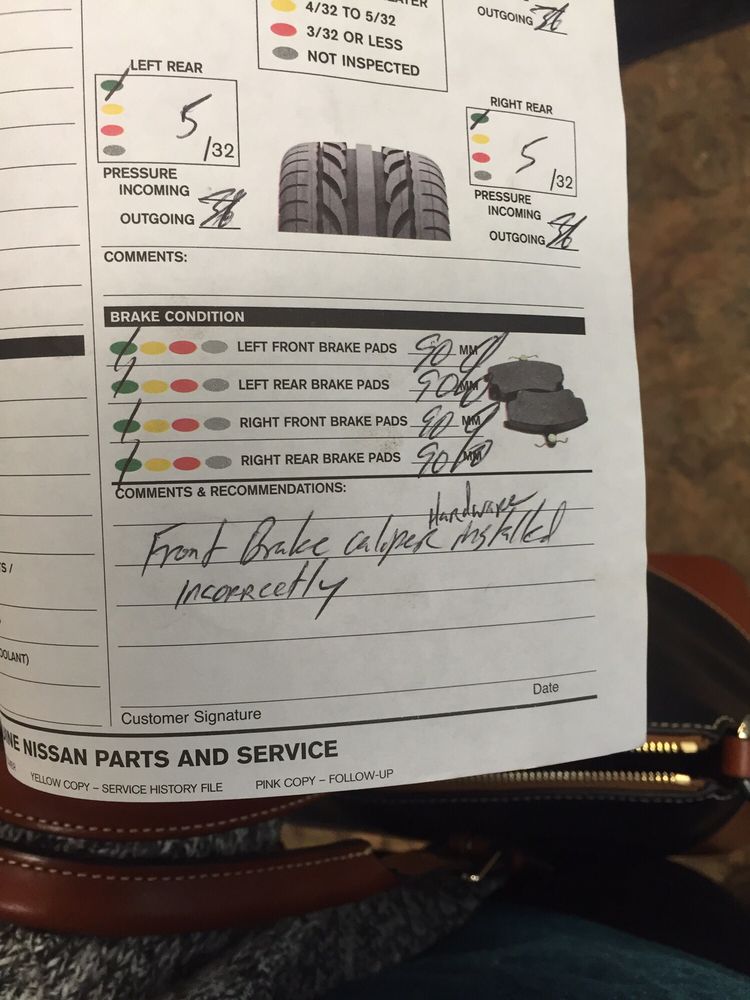 4/32 TO 5/32
3/32 OR LESS
NOT INSPECTED
OUTGOING 36
LEFT REAR
5 /32
PRESSURE
INCOMING
OUTGOING 36
RIGHT REAR
5 /32
PRESSURE
INCOMING
OUTGOING 36
COMMENTS:
BRAKE CONDITION
LEFT FRONT BRAKE PADS 90 MM
LEFT REAR BRAKE PADS 90 MM
RIGHT FRONT BRAKE PADS 90 MM
RIGHT REAR BRAKE PADS 90 MM
COMMENTS & RECOMMENDATIONS:
Hardware
Front Brake caliper installed
incorrectly
Customer Signature
Date
NISSAN PARTS AND SERVICE
YELLOW COPY – SERVICE HISTORY FILE PINK COPY – FOLLOW-UP